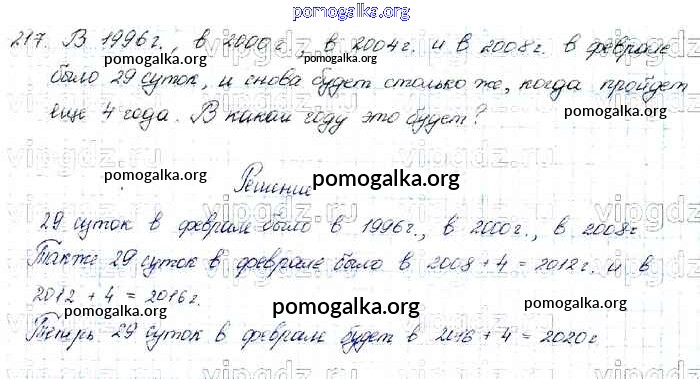 pomogalka.org
217. В 1996г., в 2000г., в 2004г. и в 2008г. в феврале
было 29 суток, и снова будет столько же, когда пройдет
еще 4 года. В каком году это будет?
pomogalka.org
pomogalka.org
pomogalka.org
Решение
pomogalka.org
29 суток в феврале было в 1996г., в 2000г., в 2008г
Также 29 суток в феврале было в 2008 + 4 = 2012г. и в
2012 + 4 = 2016г.
pomogalka.org
pomogalka.org
pomogalka.org
Теперь 29 суток в феврале будет в 2016 + 4 = 2020г
pomogalka.org